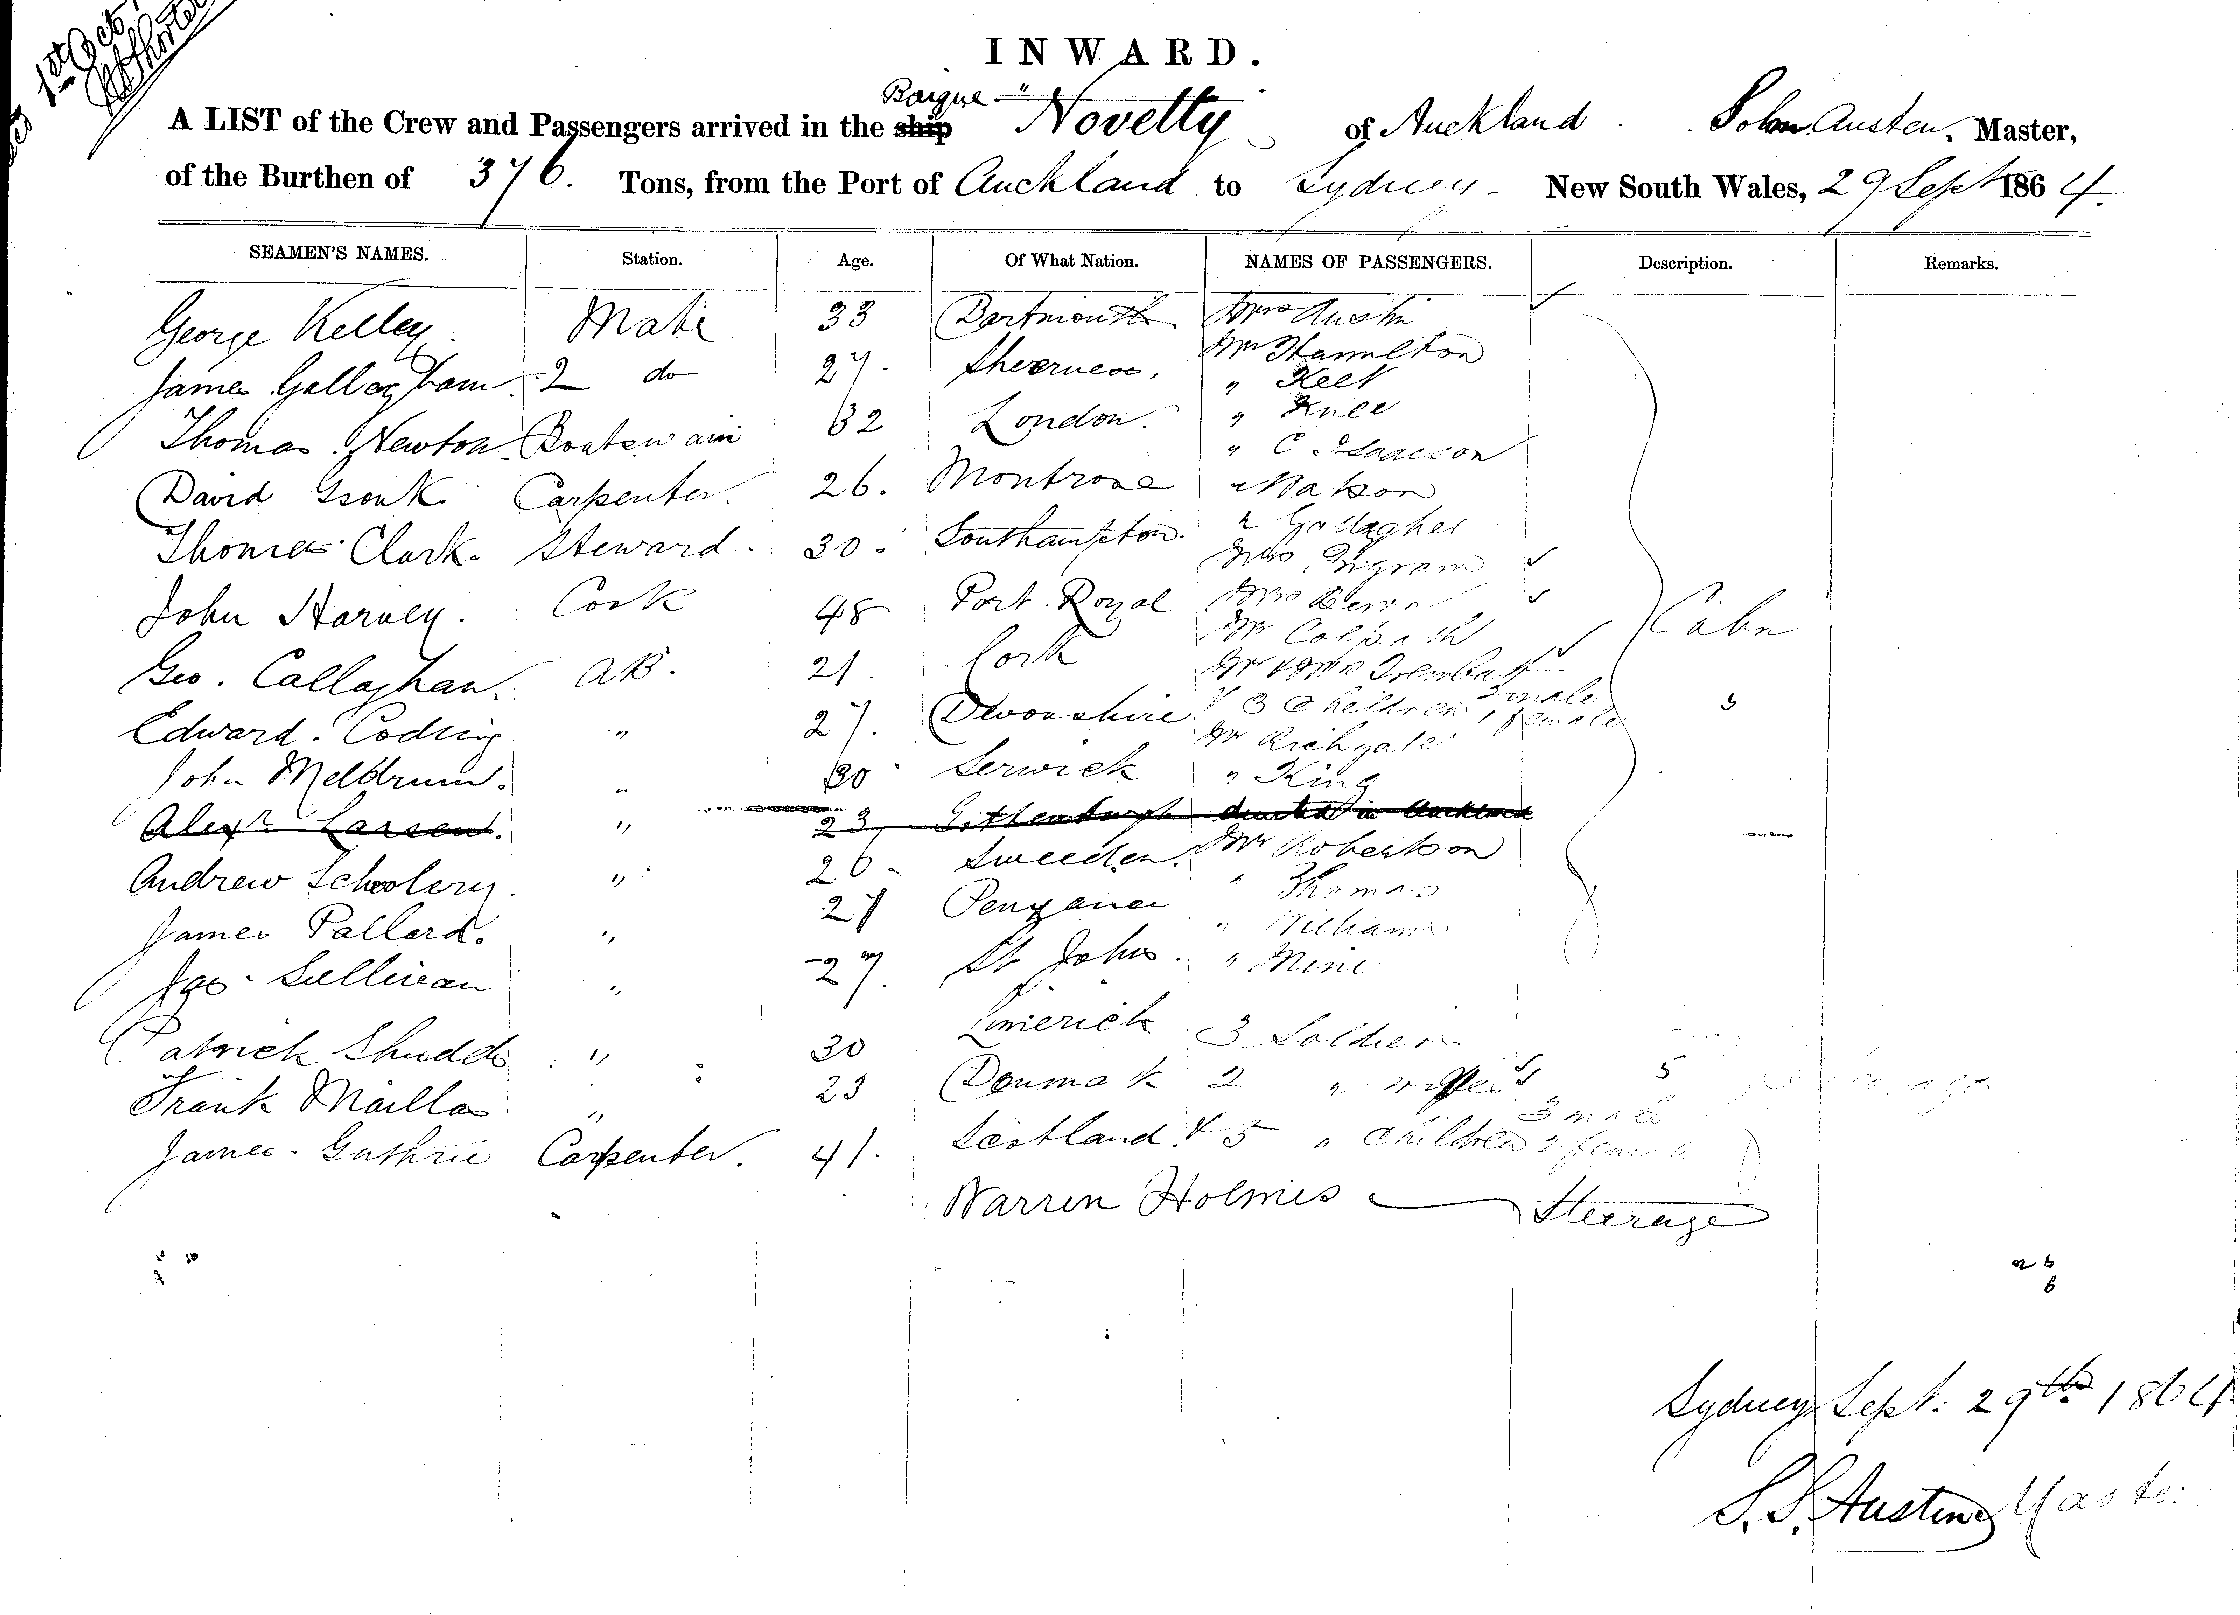 1st Oct
INWARD.
Barque "
A LIST of the Crew and Passengers arrived in the ship Novelty of Auckland John Austen, Master,
of the Burthen of 376. Tons, from the Port of Auckland to Sydney New South Wales, 29 Sept 1864.
SEAMEN'S NAMES. Station. Age. Of What Nation. NAMES OF PASSENGERS. Description. Remarks.
George Kelley Mate 33 Dartmouth Mrs Austin
Mr Hamilton
James 2 do 27. Sheerness. " Keet
Thomas Newton Boatswain 32 London. " Knee
" C. Isaacson
David Carpenter. 26. Montrose " Watson
Thomas Clark. Steward. 30. Southampton. " Gallagher
Mrs Ingram
John Harvey. Cook 48 Port Royal Mrs
Mr Cabn
Geo. Callaghan. AB. 21 Cork Mr & Mrs
& 3 Children male
Edward. Coding " 27. Devonshire 1 female 3
Mr Richgate
John Meldrum. " 30 Lerwick " King
Alexr Larsen. " 23, Gottenburgh deserted in Auckland
Andrew " 26 Sweeden. Mr Robertson
" Thomas
James Pallard. " 27 Penzance " Williams
Jas. Sullivan " 27. St Johns. "
Patrick " 30 Limerick 3 Soldiers
Frank " 23 Denmark 2 " wifes 5
3 male
James. Guthrie Carpenter. 41. Scotland & 5 " Children 2 female
Warren Holmes Steerage
Sydney Sept. 29th 1864
S. S. Austin Master